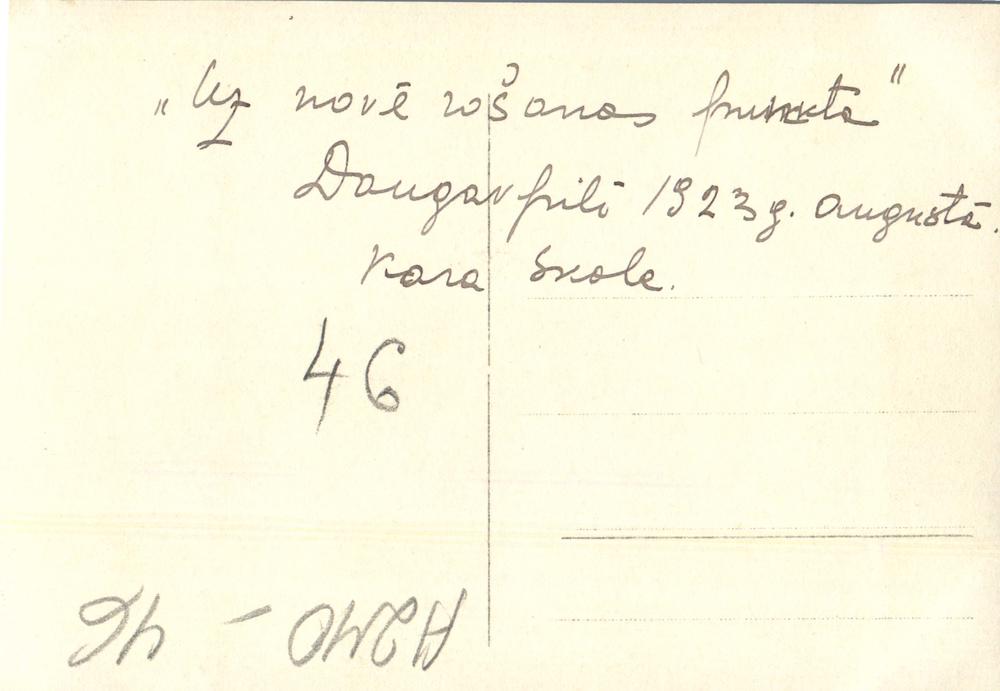 „Uz novērošanas punkta"
Daugavpilī 1923 g. augustā.
Kara skola.
46
A240 - 46